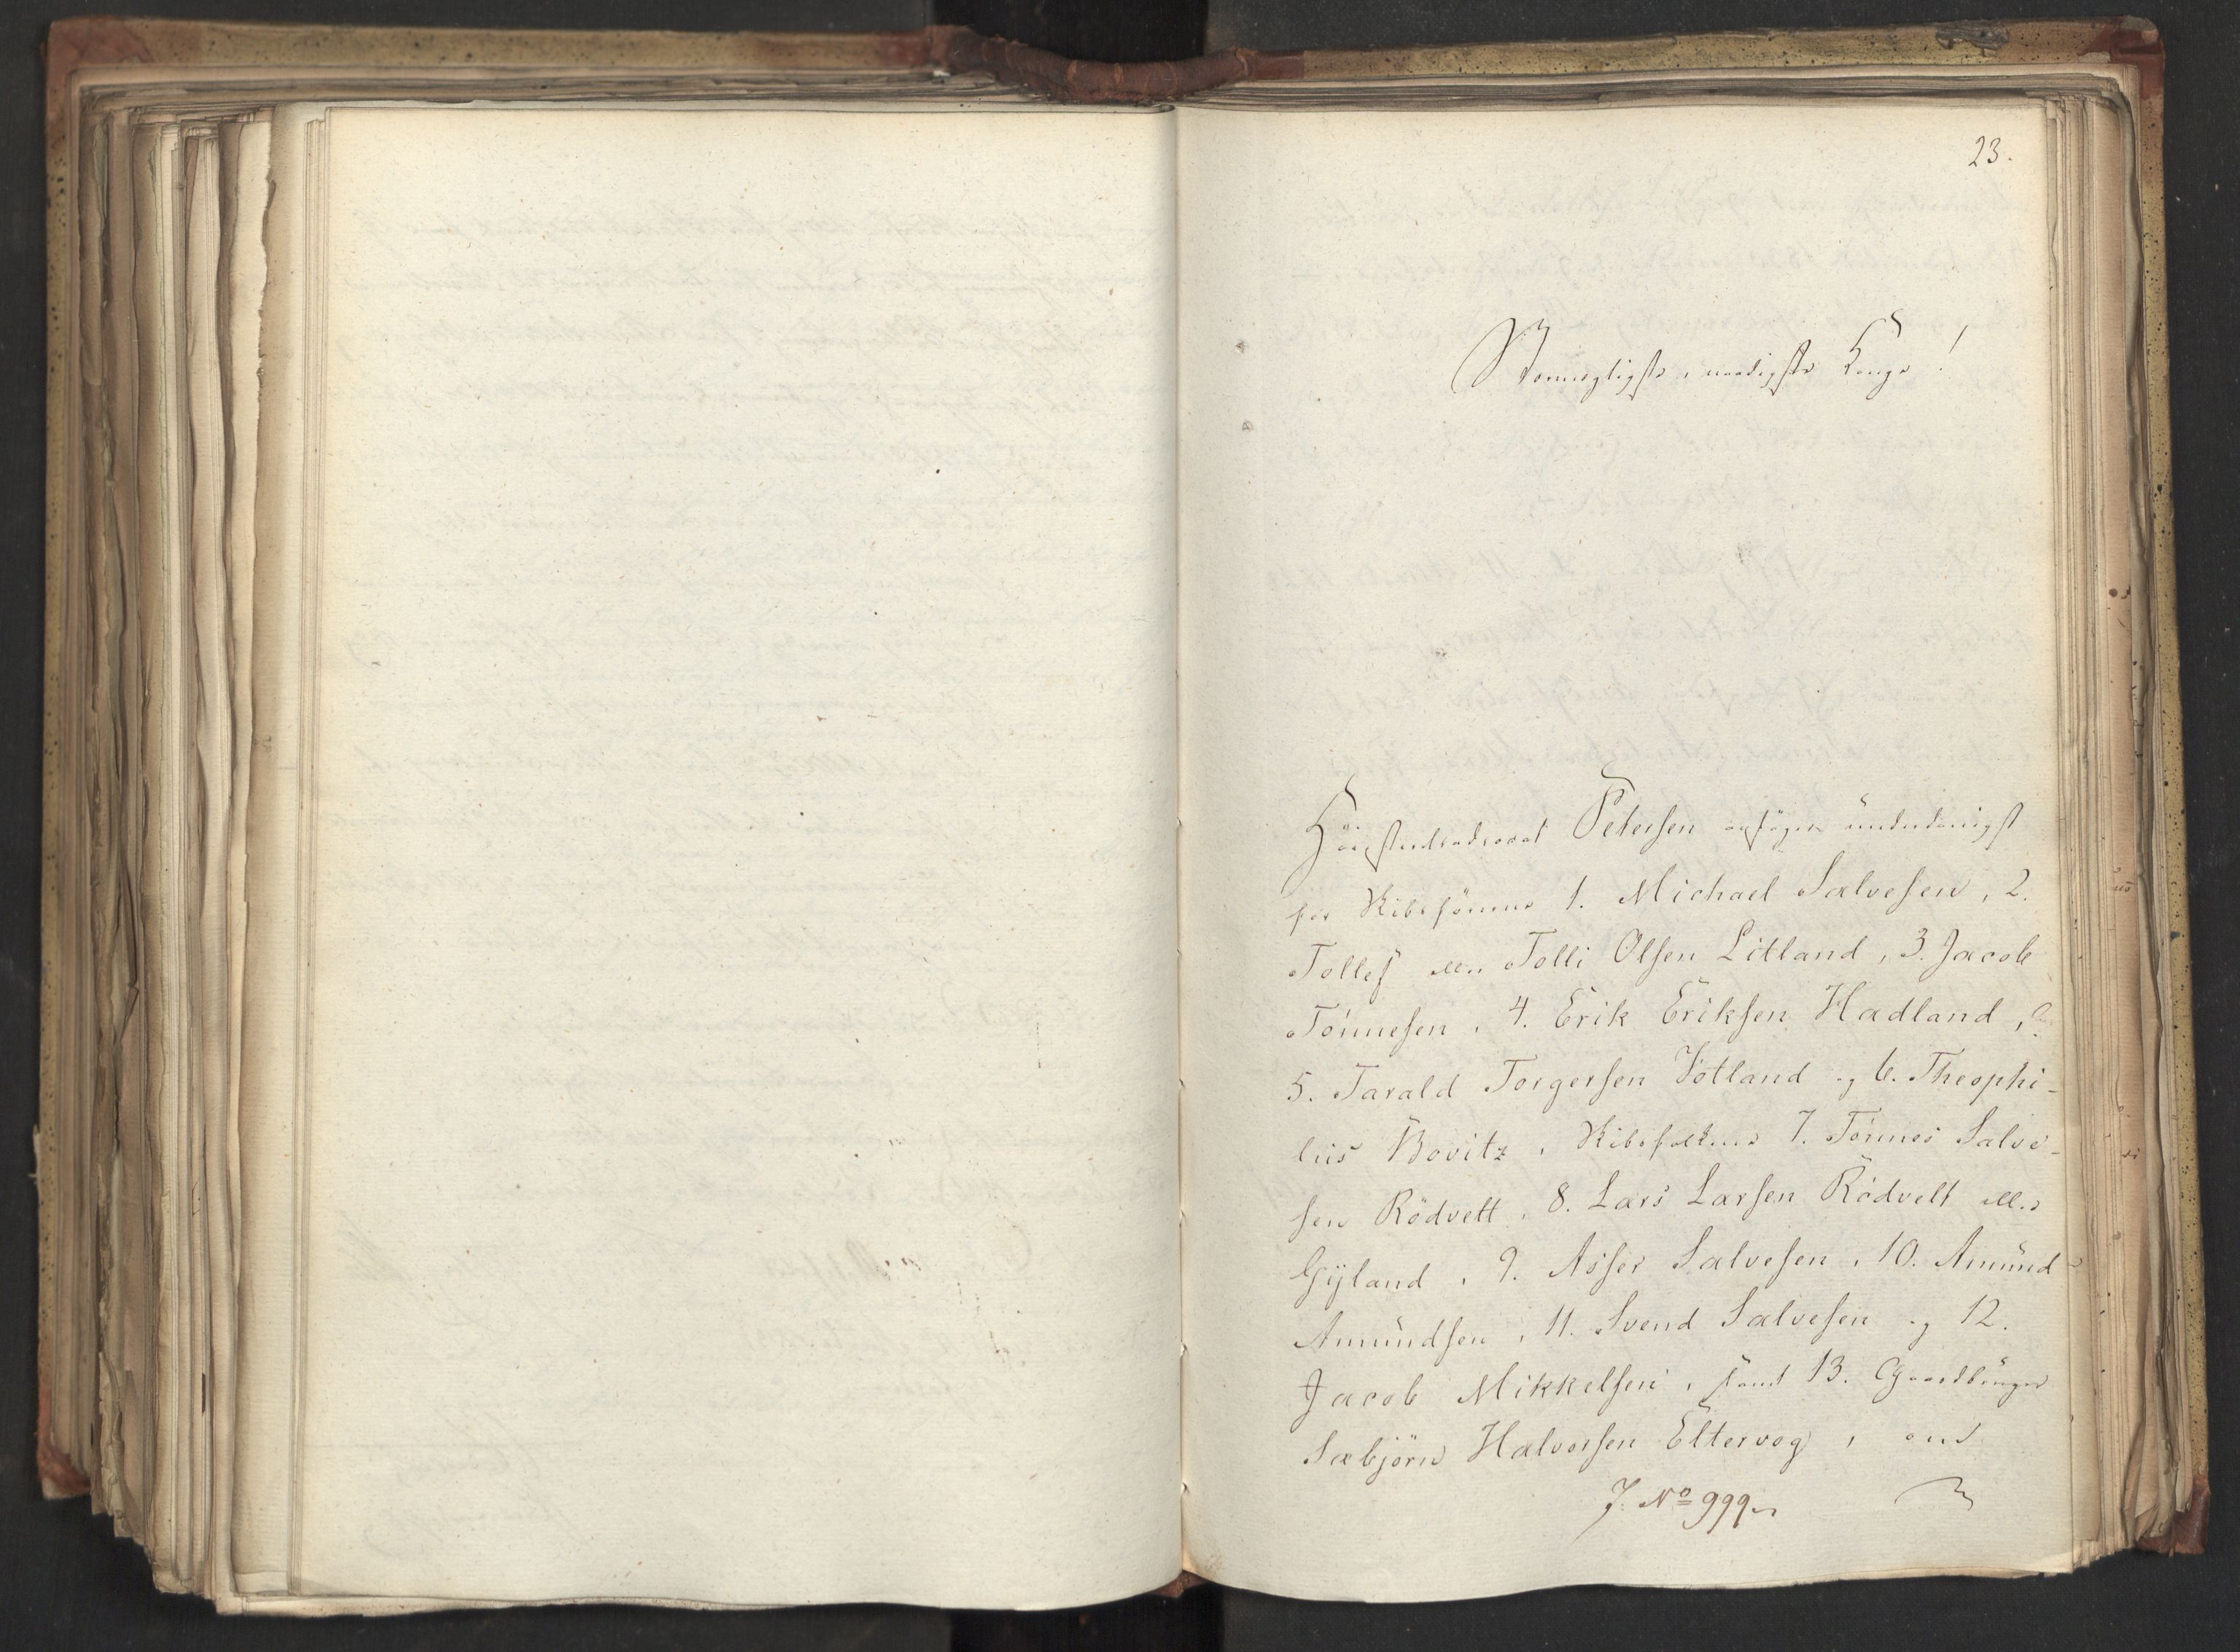 23.
Stormægtigste, naadigste Konge!
Höiesteretsadvocat Petersen ansöger underdanigst
for Skibstömmer 1. Michael Salvesen, 2.
Tollef eller Tolli Olsen Litland, 3. Jacob
Tönnesen, 4. Erik Eriksen Hadland,
5. Tarald Torgersen Vötland og 6. Theophi-
lus Bovitz, 7. Tönnes Salve-
sen Rödvelt, 8. Lars Larsen Rödvelt eller
Gyland, 9. Asser Salvesen, 10. Amund
Amundsen, 11. Svend Salvesen og 12.
Jacob Mikkelsen, samt 13. Gaardbruger
Sæbjörn Halvorsen Eltervog, om
J. No 999.